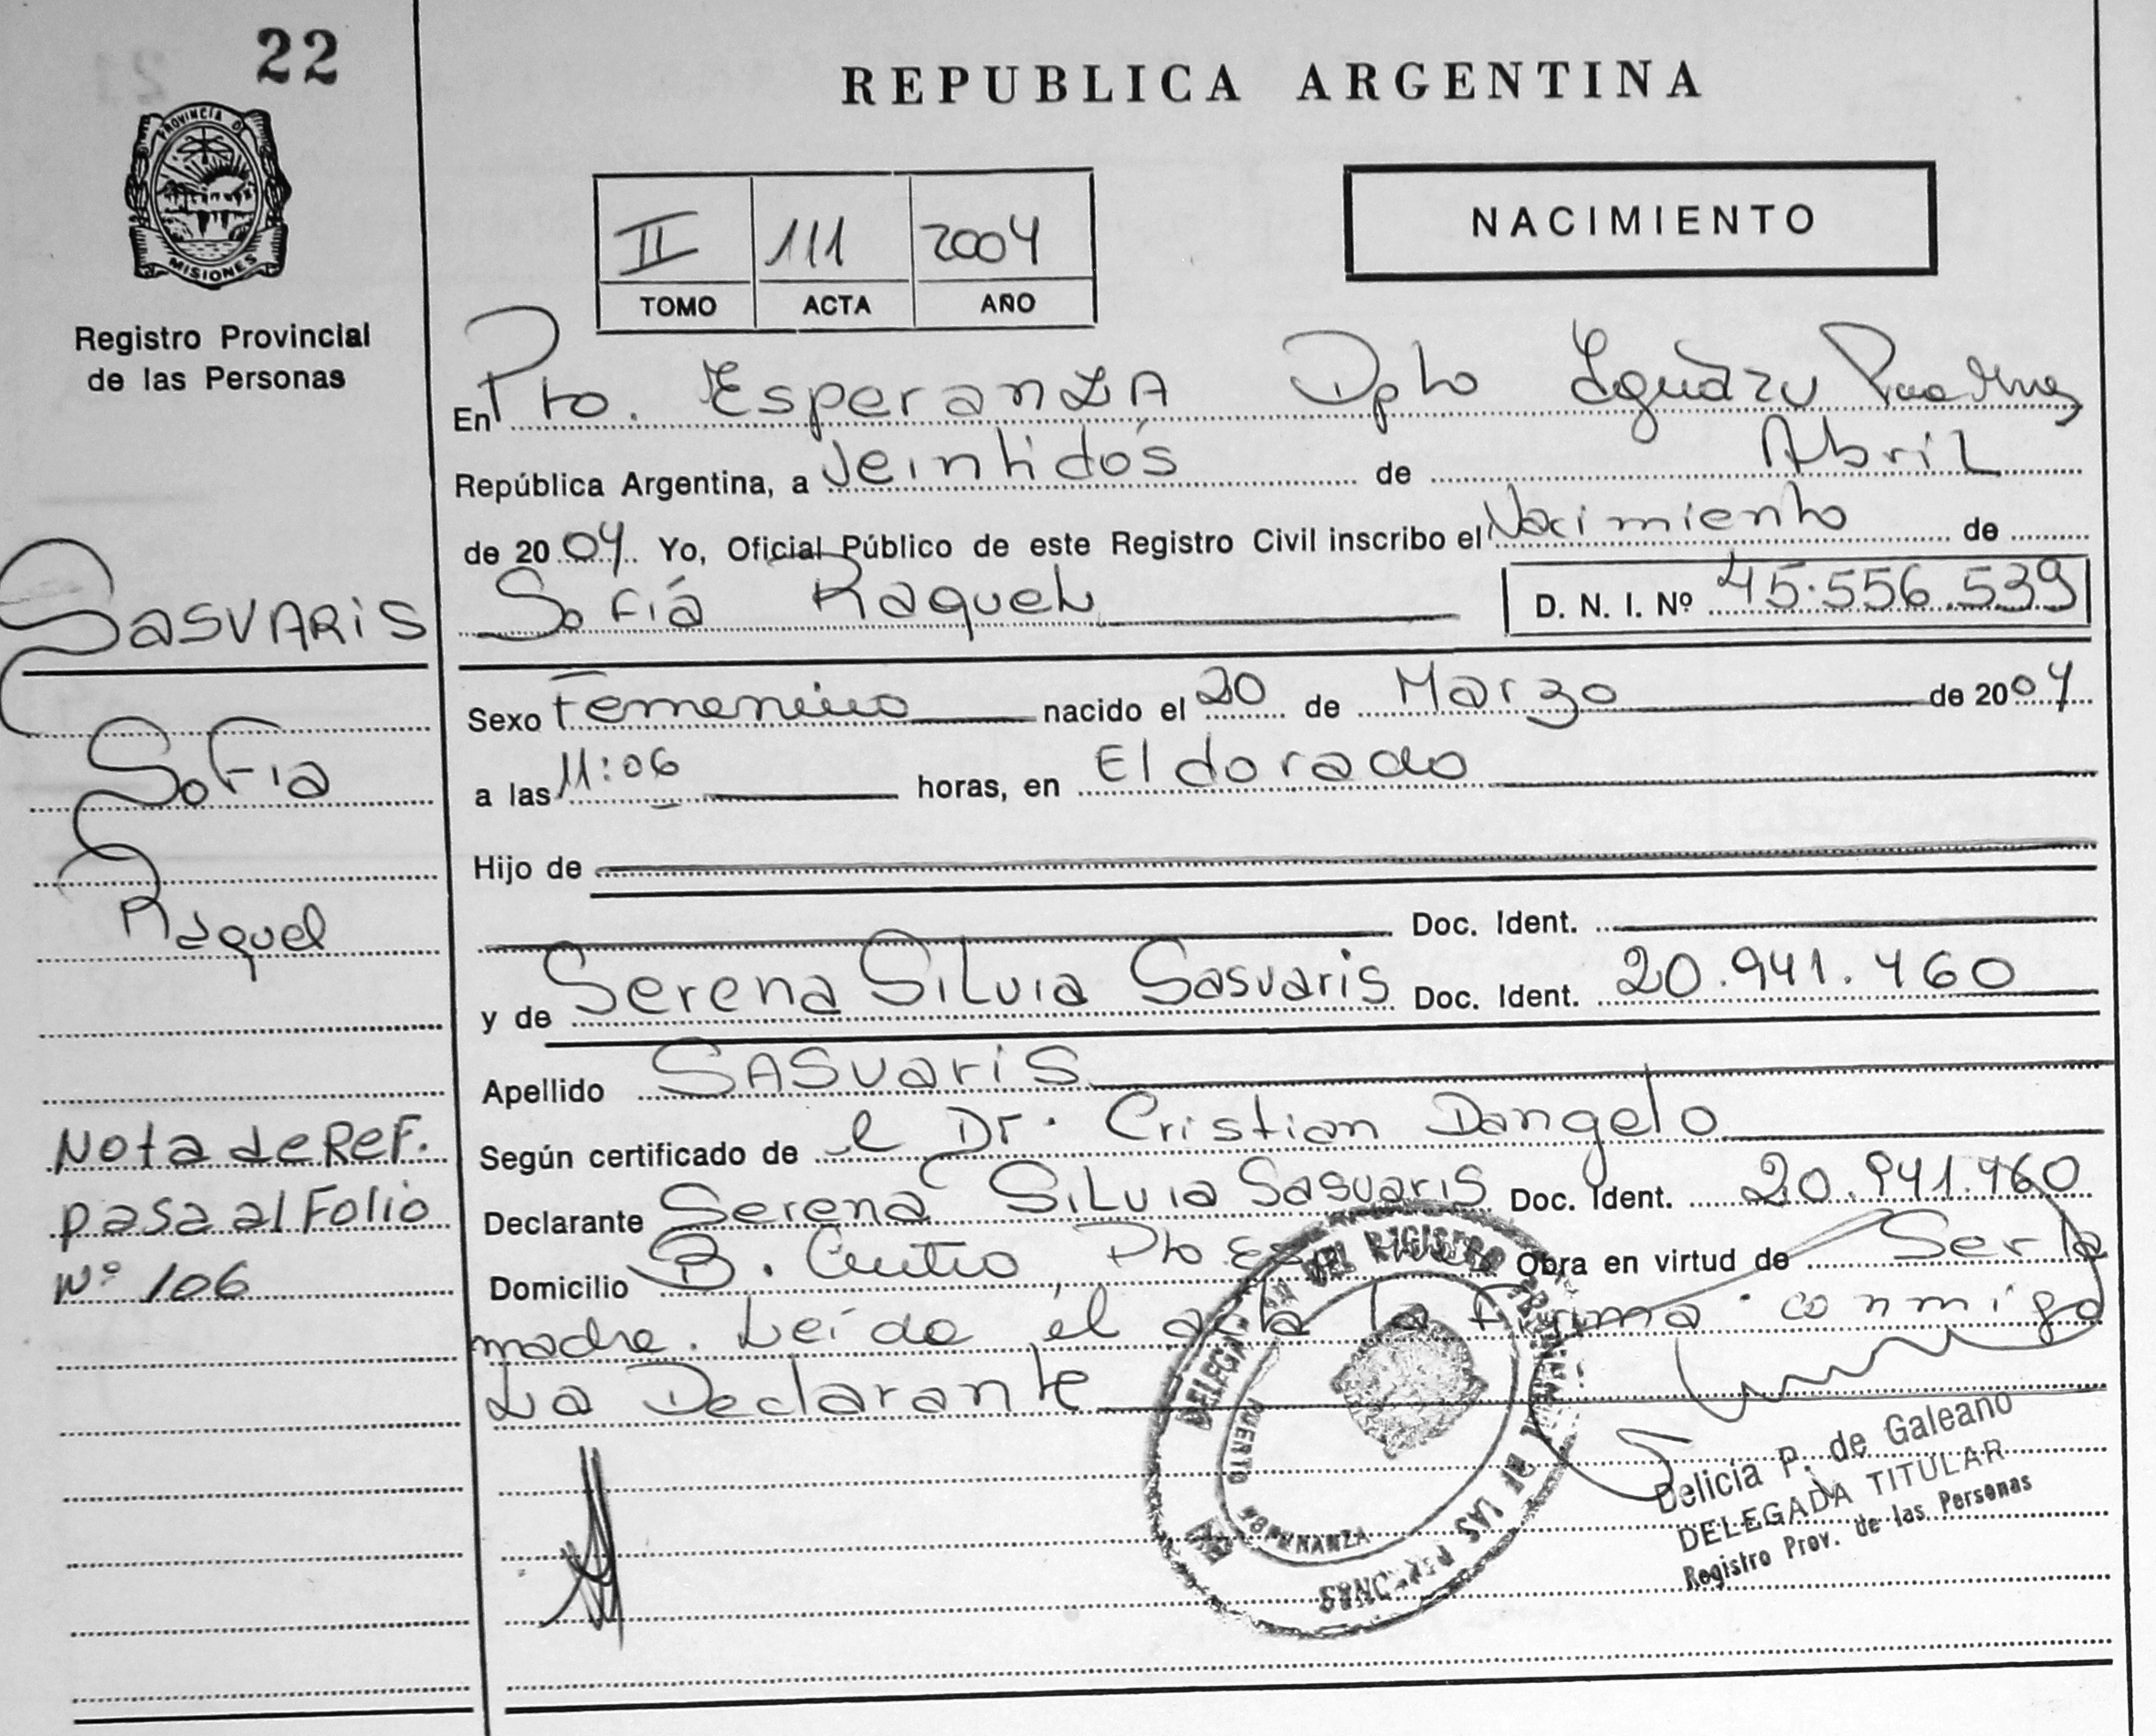 22
REPUBLICA ARGENTINA
PROVINCIA D
MISIONES
Registro Provincial
de las Personas
II 111 2004
TOMO ACTA AÑO
NACIMIENTO
En Pto. Esperanza Dpto Iguazu
República Argentina, a Veintidós de Abril
de 2004 Yo, Oficial Público de este Registro Civil inscribo el Nacimiento de
Sofiá Raquel D. N. I. Nº 45.556.539
SASVARIS
Sofia
Raquel
Nota de Ref.
pasa al Folio
Nº 106
Sexo Femenino nacido el 20 de Marzo de 2004
a las 11:06 horas, en Eldorado
Hijo de
Doc. Ident.
y de Serena Silvia Sasvaris Doc. Ident. 20.941.460
Apellido Sasvaris
Según certificado de el Dr. Cristian Dangelo
Declarante Serena Silvia Sasvaris Doc. Ident. 20.941.460
Domicilio B. Centro, Pto Obra en virtud de Ser la
madre. Leída el acta la firma conmigo
La Declarante
DEL REGISTRO
DE LAS PERSONAS
PUERTO ESPERANZA
Delicia P. de Galeano
DELEGADA TITULAR
Registro Prov. de las Personas